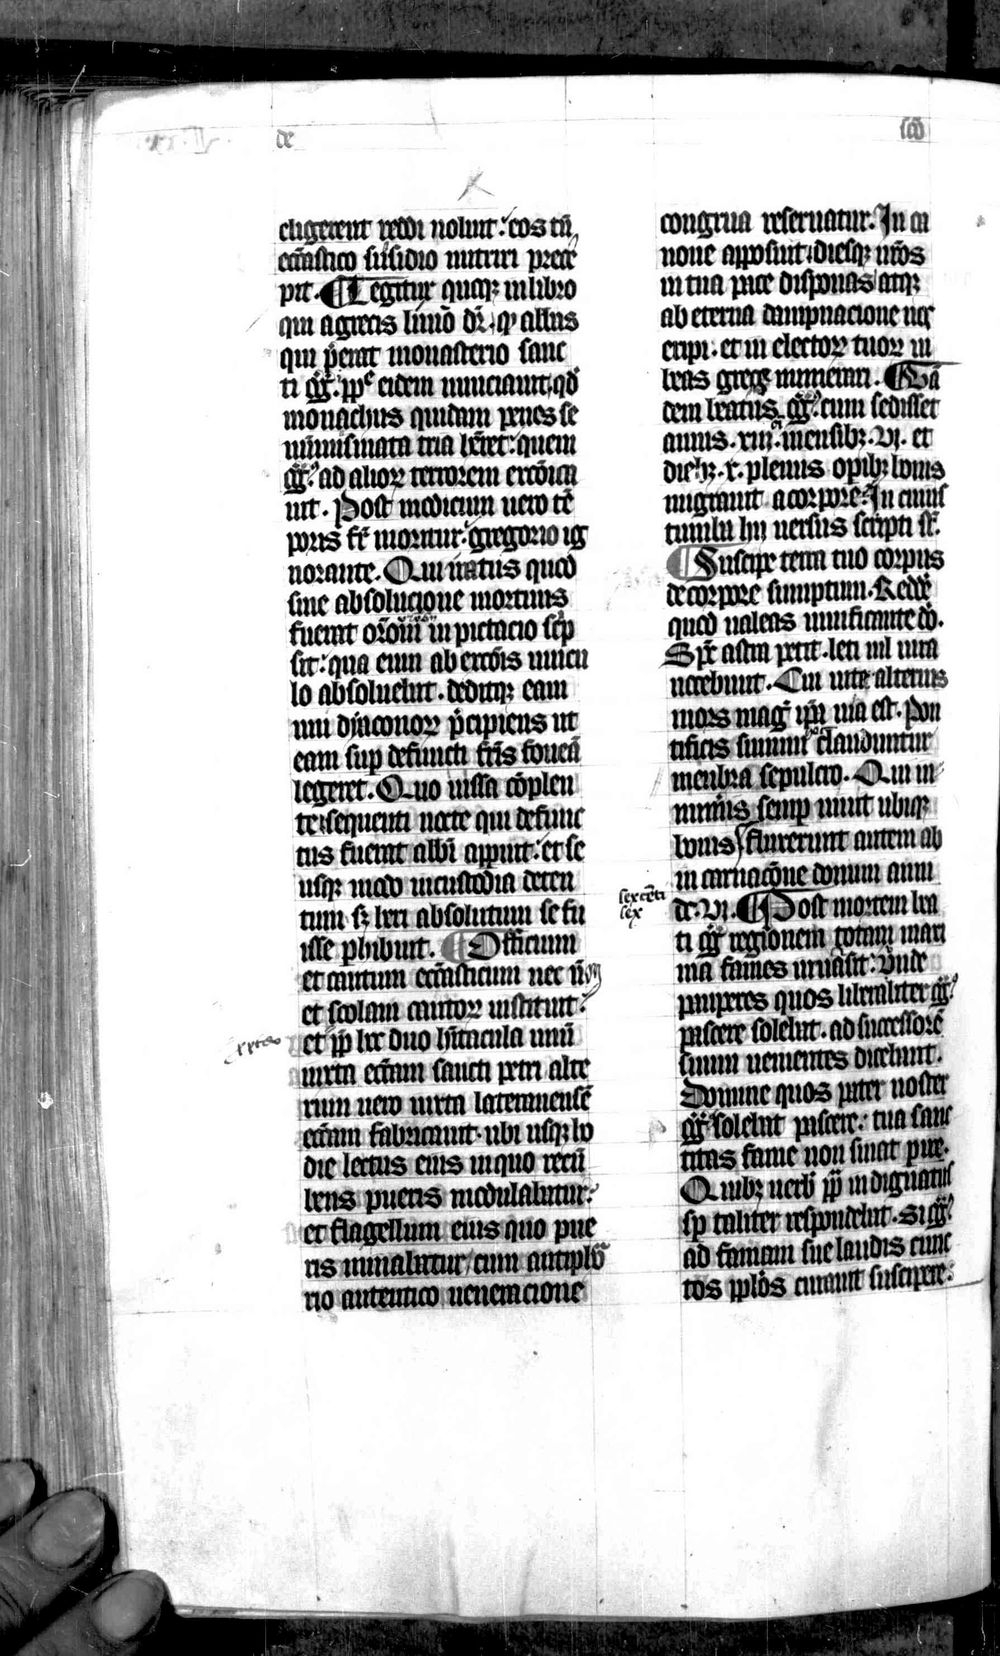 de
scō
eligerent reddi noluit: eos tn̄
ecc̄iastico subsidio nutriri prece
pit. Legitur quoqꝫ in libro
qui a grecis limō dr̄. qꝙ abbas
qui p̄erat monasterio sanc
ti gg̅. ꝓpͤ eidem nunciauit. qd̄
monachus quidam penes se
numismata tria hr̄et: quem
gg̅ꝰ ad alioꝝ terrorem excōica
uit. Post modicum uero tē
poris fr̄ moritur. gregorio ig
norante. Qui iratus quod
sine absolucione mortuus
fuerat or̄oem in pictacio sc̄p
sit: qua eum ab excōis uincu
lo absoluebat. deditqꝫ eam
uni dyaconoꝝ p̄cipiens ut
eam sup defuncti fr̄is foueā
legeret. Quo iussa cōplen
te: sequenti nocte qui defunc
tus fuerat abbi appuit: et se
usqꝫ modo in custodia deten
tum sꝫ heri absolutum se fu
isse ꝑhibuit. Officium
et cantum ecc̄iasticum nec n̄on
et scolam cantoꝝ instituit:
et ꝓ hoc duo hitacula unū
iuxta ecc̄iam sancti petri alte
rum uero iuxta lateranensē
ecc̄iam fabricauit. ubi usqꝫ ho
die lectus eius in quo recū
bens pueris modulabatur:
et flagellum eius quo pue
ris minabatur / cum antiph̄o
rio autentico ueneracione
congrua reseruatur. In ca
none apposuit. diesqꝫ nr̄os
in tua pace disponas atqꝫ
ab eterna dampnacione nos
eripi. et in electoꝝ tuoꝝ iu
beas grege numerari. Tā
dem beatus gg̅ꝰ. cum sedisset
annis .xiii. mensibꝫ .vi. et
diebꝫ .x. plenus opibꝫ bonis
migrauit a corpore. In cuius
tumulu hii uersus scripti st̄.
Suscipe terra tuo corpus
de corpore sumptum. Redde
quod ualeas uiuificante dō.
Spc̄ astra petit. leti nil iura
nocebunt. Cui uite alterius
mors magͥ ipā uia est. Pon
tificis summi hoc clauduntur
menbra sepulcro. Qui in
numīis semp uiuit ubiqꝫ
bonis. fluxerunt autem ab
incarnacōne domini anni
dc. vi. Post mortem bea
ti gg̅ regionem totam maxi
ma fames inuasit: unde
pauperes quos liberaliter gg̅ꝰ
pascere solebat. ad successorē
suum uenientes dicebant.
Domine quos pater noster
gg̅ solebat pascere: tua sanc
titas fame non sinat pire.
Quibꝫ uerb̄ pp̄ indignatus
sp taliter respondebat. si gg̅ꝰ
ad famam sue laudis cunc
tos pplōs curauit suscipere:
sexcēti
sex